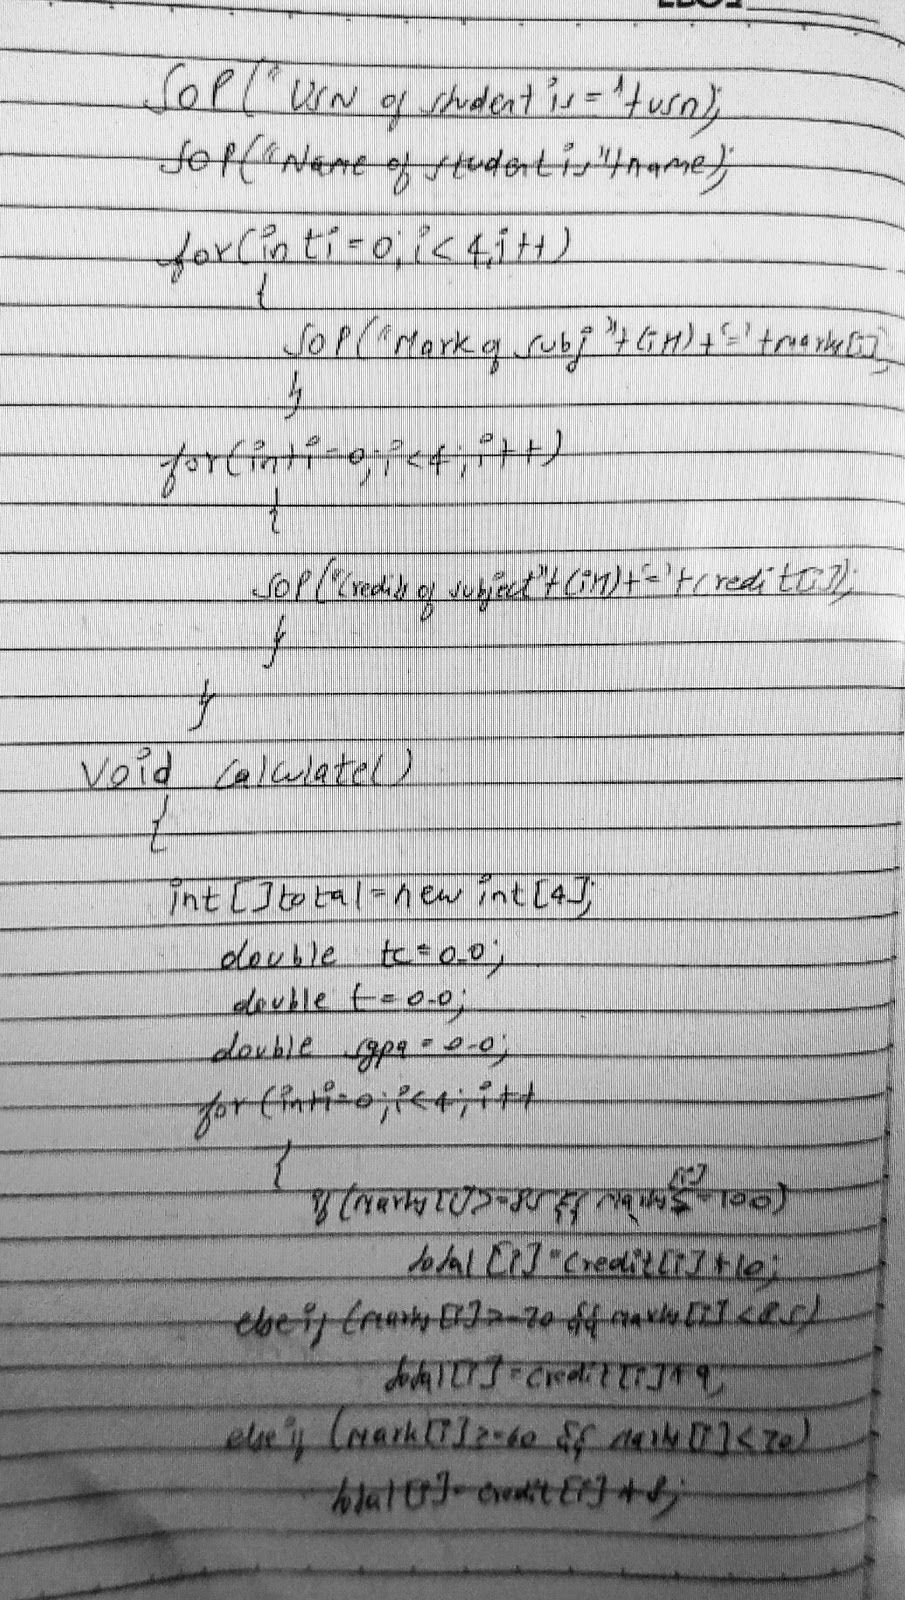 SOP("USN of student is="+usn);
SOP("Name of student is"+name);
for(int i=0;i<4,i++)
{
SOP("Mark of subj"+(i+1)+'='+marks[i]
}
for(int i=0;i<4;i++)
{
SOP("Credits of subject"+(i+1)+'='+credit[i]);
}
}
Void Calculate()
{
int []total=new int[4];
double tc=0.0;
double t=0.0;
double sgpa=0.0;
for (int i=0;i<4;i++
{
if (marks [i]>=85 && marks[i]<=100)
total [i]=credit[i]*10;
else if (marks [i]>=70 && marks[i]<85)
total[i]=credit[i]*9;
else if (mark[i]>=60 && marks [i]<70)
total[i]=credit[i]*8;